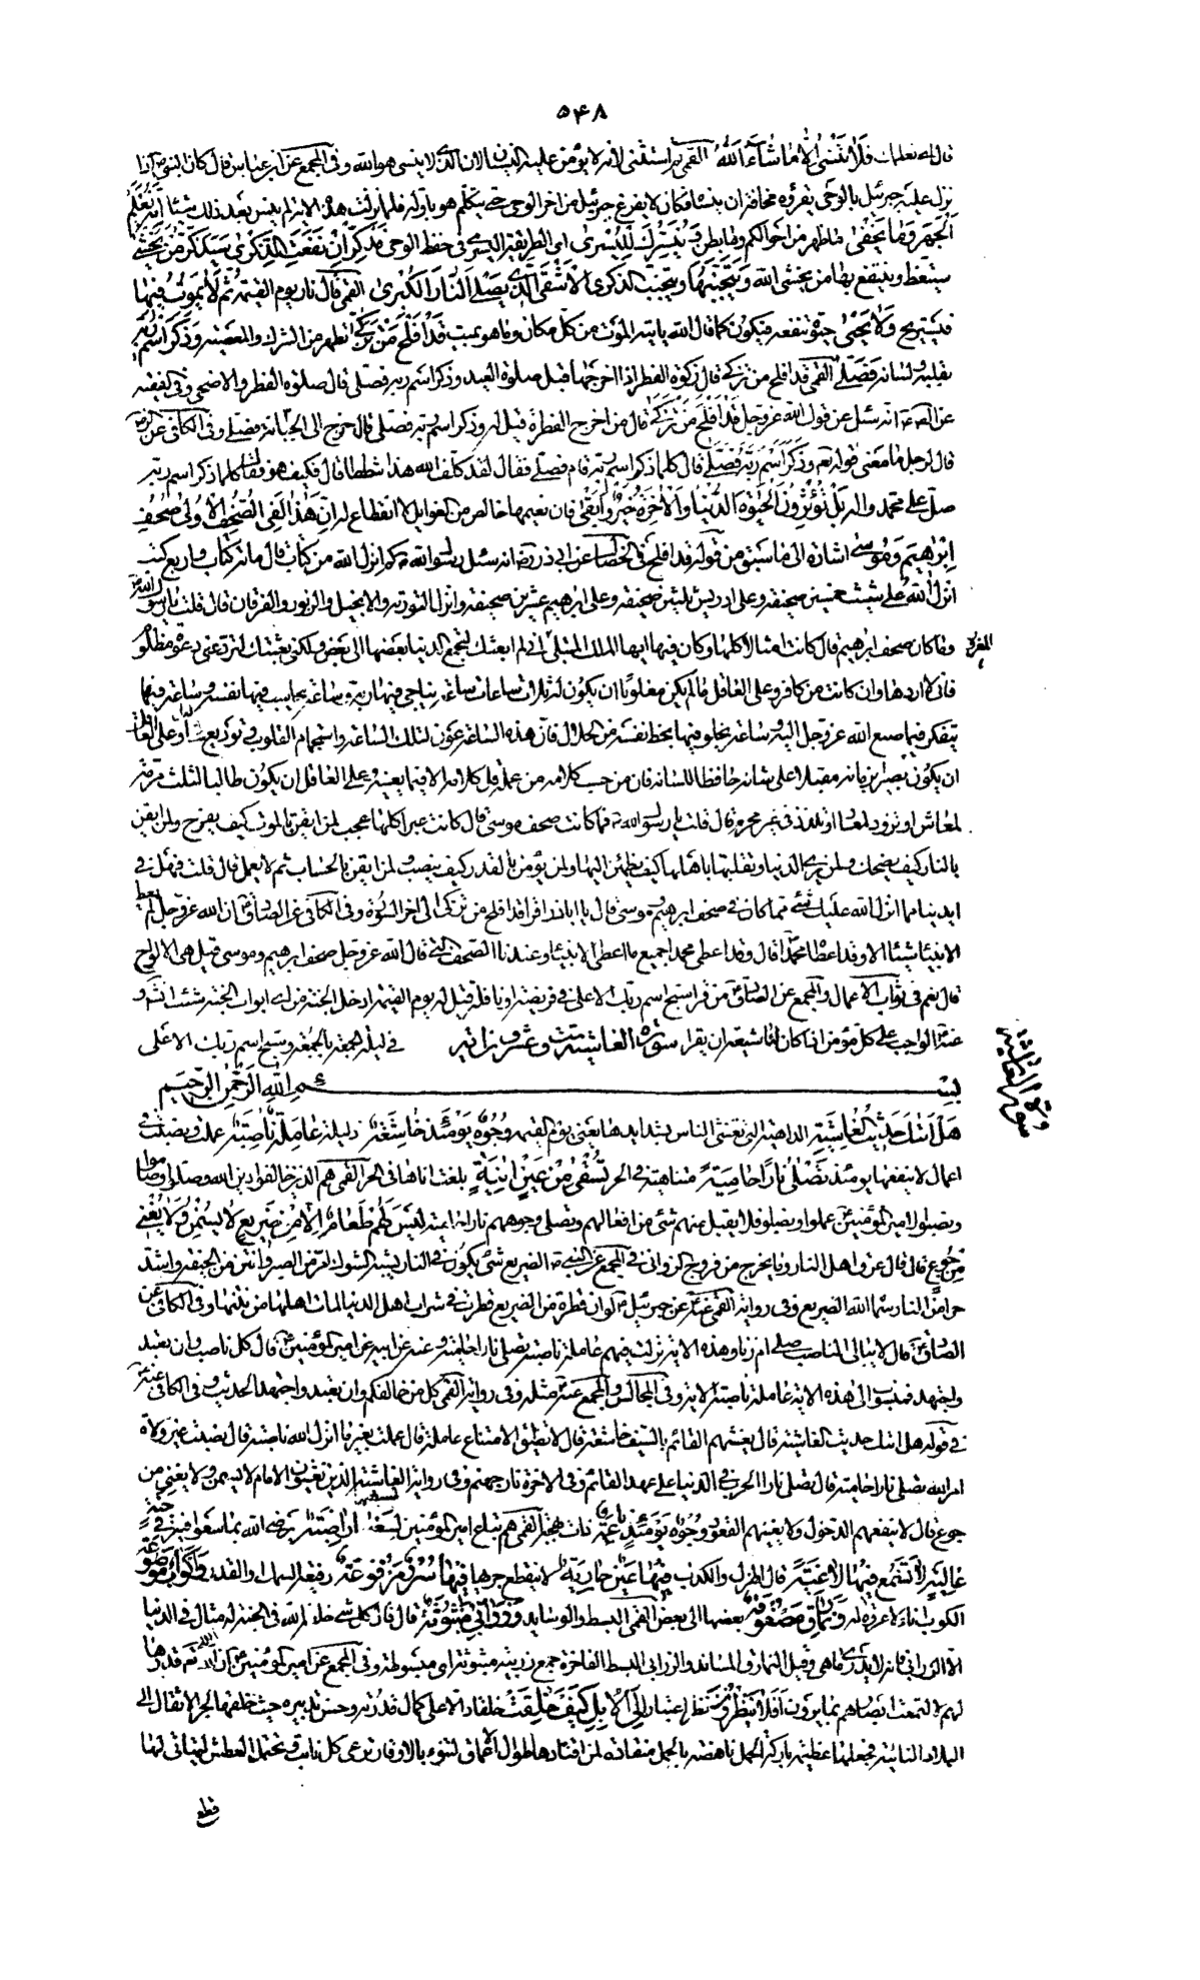 ٥٤٨
قال له نعلمك فلا تنسى الا ما شاء الله القمي ثم استثنى لانه لا يؤمن عليه النسيان لان الذي لا ينسى هو الله وفي المجمع عن ابن عباس قال كان النبي ص اذا
نزل عليه جبرئيل بالوحي يقرؤه مخافة ان ينساه فكان لا يفرغ جبرئيل من اخر الوحي حتى يتكلم هو باوله فلما نزلت هذه الاية لم ينس بعد ذلك شيئا انه يعلم
الجهر وما يخفى ما ظهر من احوالكم وما بطن ونيسرك لليسرى اي الطريقة اليسرى في حفظ الوحي فذكر ان نفعت الذكرى سيذكر من يخشى
سيتعظ وينتفع بها من يخشى الله ويتجنبها ويتجنب الذكرى الاشقى الذي يصلى النار الكبرى القمي قال نار يوم القيمة ثم لا يموت فيها
فيستريح ولا يحيى حيوة تنفعه فيكون كما قال الله ياتيه الموت من كل مكان وما هو بميت قد افلح من تزكى تطهر من الشرك والمعصية وذكر اسم ربه
بقلبه ولسانه فصلى القمي قد افلح من تزكى قال زكوة الفطر اذا اخرجها قبل صلوة العيد وذكر اسم ربه فصلى قال صلوة الفطر والاضحى وفي الفقيه
عن الص ع انه سئل عن قول الله عز وجل قد افلح من تزكى قال من اخرج الفطرة قيل له وذكر اسم ربه فصلى قال خرج الى الجبانة فصلى وفي الكافي عن الرضا
قال لرجل ما معنى قوله تع وذكر اسم ربه فصلى قال كلما ذكر اسم ربه قام فصلى فقال لقد كلف الله هذا شططا قال فكيف هو فقال كلما ذكر اسم ربه
صلى على محمد واله بل تؤثرون الحيوة الدنيا والاخرة خير وابقى فان نعيمها خالص من الغوايل لا انقطاع له ان هذا لفي الصحف الاولى صحف
ابرهيم وموسى اشارة الى ما سبق من قوله قد افلح في الخصال عن ابي ذر ره انه سئل رسول الله ص كم انزل الله من كتاب قال مائة كتاب واربع كتب
انزل الله على شيث خمسين صحيفة وعلى ادريس ثلثين صحيفة وعلى ابرهيم عشرين صحيفة وانزل التورية والانجيل والزبور والفرقان قال قلت يا رسول الله
وما كان صحف ابرهيم قال كانت امثالا كلها وكان فيها ايها الملك المبتلى المغرور اني لم ابعثك لتجمع الدنيا بعضها الى بعض ولكني بعثتك لترد عني دعوة مظلوم
فاني لا اردها وان كانت من كافر وعلى العاقل ما لم يكن مغلوبا ان يكون له ثلث ساعات ساعة يناجي فيها ربه وساعة يحاسب فيها نفسه وساعة فيها
يتفكر فيما صنع الله عز وجل اليه وساعة يخلو فيها بحظ نفسه من الحلال فان هذه الساعة عون لتلك الساعة واستجمام القلوب وتوديع لها وعلى العاقل
ان يكون بصيرا بزمانه مقبلا على شانه حافظا للسانه فان من حسب كلامه من عمله قل كلامه الا فيما يعنيه وعلى العاقل ان يكون طالبا لثلث مرمة
لمعاش او تزود لمعاد او تلذذ في غير محرم قال قلت يا رسول الله ص فما كانت صحف موسى قال كانت عبرا كلها عجب لمن ايقن بالموت كيف يفرح ولمن ايقن
بالنار كيف يضحك ولمن يرى الدنيا وتقلبها باهلها كيف يطمئن اليها ولمن يؤمن بالقدر كيف ينصب ولمن ايقن بالحساب ثم لا يعمل قال قلت فهل في
ايدينا مما انزل الله عليك شئ مما كان في صحف ابرهيم وموسى قال يا ابا ذر اقرا قد افلح من تزكى الى اخر السورة وفي الكافي عن الصادق ع ان الله عز وجل لم يعط
الانبياء شيئا الا وقد اعطاه محمدا قال وقد اعطى محمدا جميع ما اعطى الانبياء وعندنا الصحف التي قال الله عز وجل صحف ابرهيم وموسى قيل هي الالواح
قال نعم في ثواب الاعمال والمجمع عن الصادق ع من قرا سبح اسم ربك الاعلى في فريضة او نافلة قيل له يوم القيمة ادخل الجنة من اي ابواب الجنة شئت انش و
عنه ع الواجب على كل مؤمن اذا كان لنا شيعة ان يقرا في ليلة الجمعة بالجمعة وسبح اسم ربك الاعلى
سورة الغاشية ست وعشرون اية
سورة الغاشية
بسم الله الرحمن الرحيم
هل اتيك حديث الغاشية الداهية التي تغشى الناس بشدايدها يعني يوم القيمة وجوه يومئذ خاشعة ذليلة عاملة ناصبة عملت ونصبت في
اعمال لا ينفعها يومئذ تصلى نارا حامية متناهية في الحر تسقى من عين انية بلغت اناها في الحر القمي هم الذين خالفوا دين الله وصلوا وصاموا
ونصبوا لامير المؤمنين ع عملوا ونصبوا فلا يقبل منهم شئ من افعالهم وتصلى وجوههم نارا حامية ليس لهم طعام الا من ضريع لا يسمن ولا يغني
من جوع قال قال عرق اهل النار وما يخرج من فروج الزواني في المجمع عن النبي ص الضريع شئ يكون في النار يشبه الشوك امر من الصبر وانتن من الجيفة واشد
حرا من النار سماه الله الضريع وفي رواية القمي عنه ع عن جبرئيل لو ان قطرة من الضريع قطرت في شراب اهل الدنيا لمات اهلها من نتنها وفي الكافي عن
الصادق ع قال لا يبالي الناصب صلى ام زنا وهذه الاية نزلت فيهم عاملة ناصبة تصلى نارا حامية وعنه عن ابيه عن امير المؤمنين ع قال كل ناصب وان تعبد
واجتهد فمنسوب الى هذه الاية عاملة ناصبة الاية وفي المجالس والمجمع عنه ع مثله وفي رواية القمي كل من خالفكم وان تعبد واجتهد الحديث وفي الكافي عنه ع
في قوله هل اتيك حديث الغاشية قال يغشيهم القائم بالسيف خاشعة قال لا تطيق الامتناع عاملة قال عملت بغير ما انزل الله ناصبة قال نصبت غير ولاة
امر الله تصلى نارا حامية قال تصلى نار الحرب في الدنيا على عهد القائم وفي الاخرة نار جهنم وفي رواية الغاشية الذين يغشون الامام لا يسمن ولا يغني من
جوع قال لا ينفعهم الدخول ولا يغنيهم القعود وجوه يومئذ ناعمة ذات بهجة القمي هم اتباع امير المؤمنين لسعيها راضية يرضى الله بما سعوا فيه في جنة
عالية لا تسمع فيها لاغية قال الهزل والكذب فيها عين جارية لا ينقطع جريها فيها سرر مرفوعة رفيعة السمك او القدر واكواب موضوعة
الكوب اناء لا عروة له ونمارق مصفوفة بعضها الى بعض القمي البسط والوسايد وزرابي مبثوثة قال قال كل شئ خلقه الله في الجنة له مثال في الدنيا
الا الزرابي فانه لا يدرى ما هي وقيل النمارق المساند والزرابي البسط الفاخرة جمع زربية مبثوثة اي مبسوطة وفي المجمع عن امير المؤمنين ع لولا ان الله تع قدرها
لهم لالتمعت ابصارهم بما يرون افلا ينظرون نظر اعتبار الى الابل كيف خلقت خلقا دالا على كمال قدرته وحسن تدبيره حيث خلقها لجر الاثقال الى
البلاد النائية فجعلها عظيمة باركة للحمل ناهضة بالحمل منقادة لمن اقتادها طوال الاعناق لتنوء بالاوقار ترعى كل نابت وتحتمل العطش ليتاتى لها
قطع